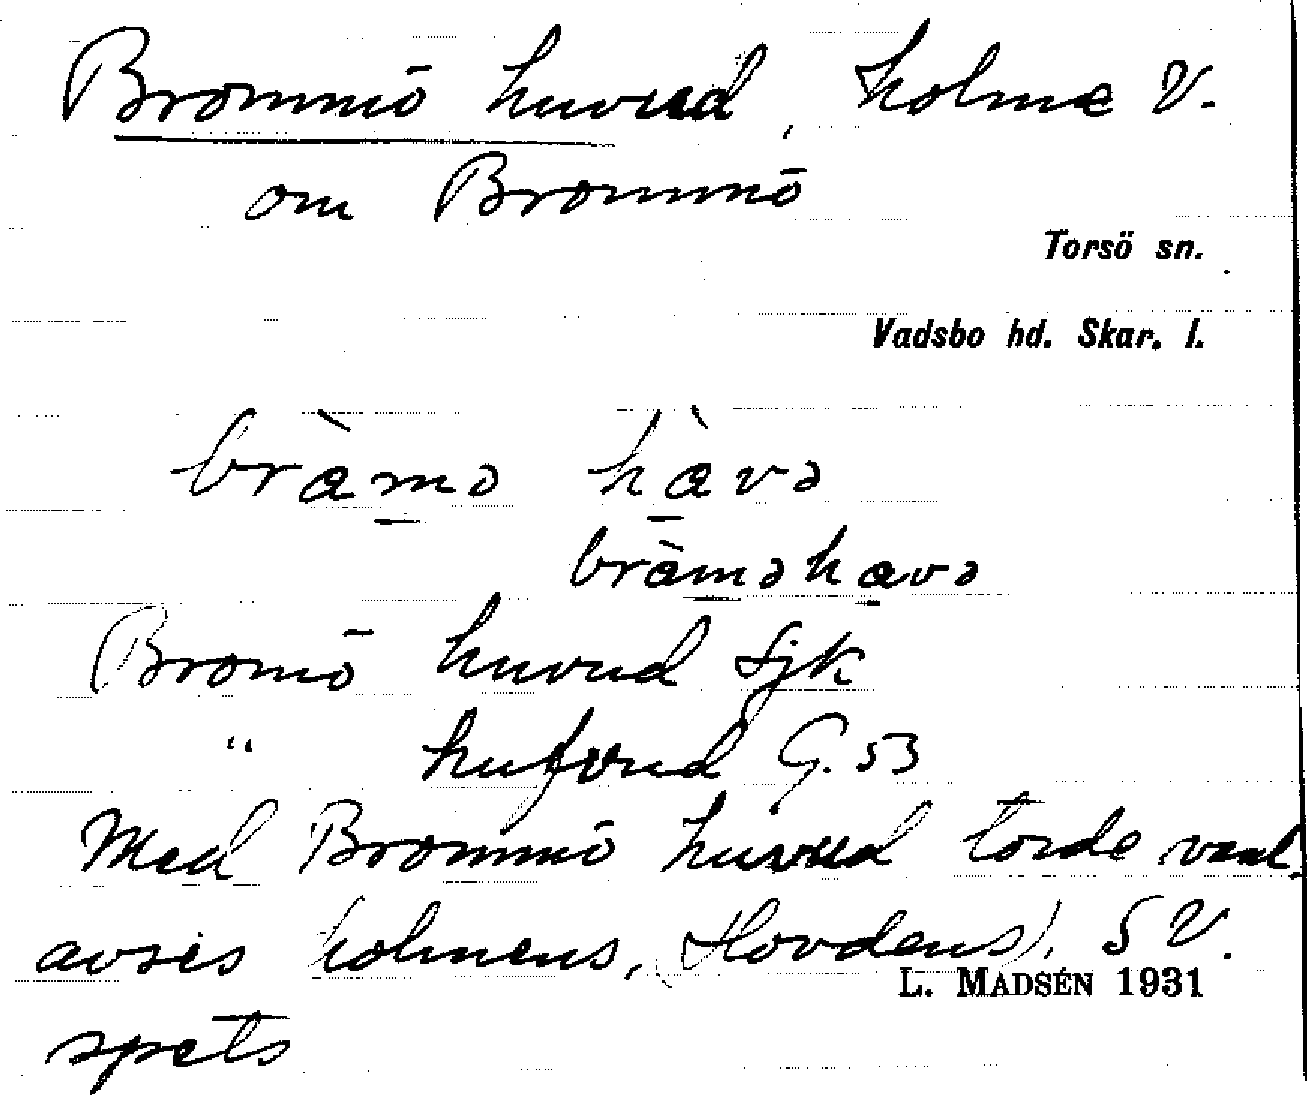 Brommö huvud, holme V.
om Brommö
Torsö sn.
Vadsbo hd. Skar. l.
bràmə hàvə
bràməhavə
Bromö huvud Sjk
" hufvud G. 53
Med Brommö huvud torde väl
avses holmens, (Hovdens), SV.
L. MADSÉN 1931
spets